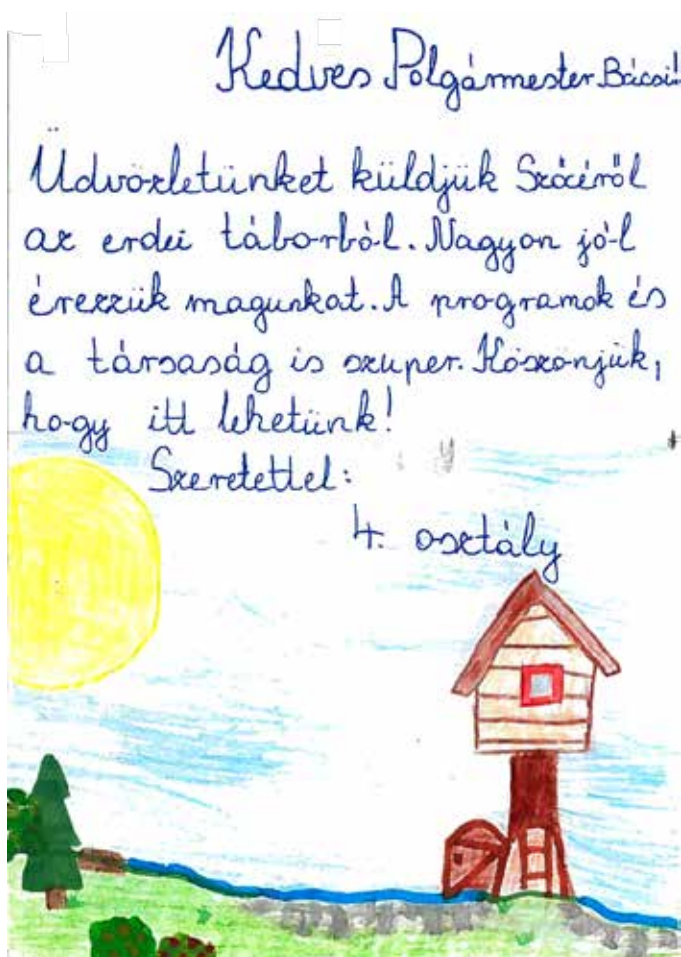 Kedves Polgármester Bácsi!
Üdvözletünket küldjük Szőcéről
az erdei táborból. Nagyon jól
érezzük magunkat. A programok és
a társaság is szuper. Köszönjük,
hogy itt lehetünk!
Szeretettel:
4. osztály